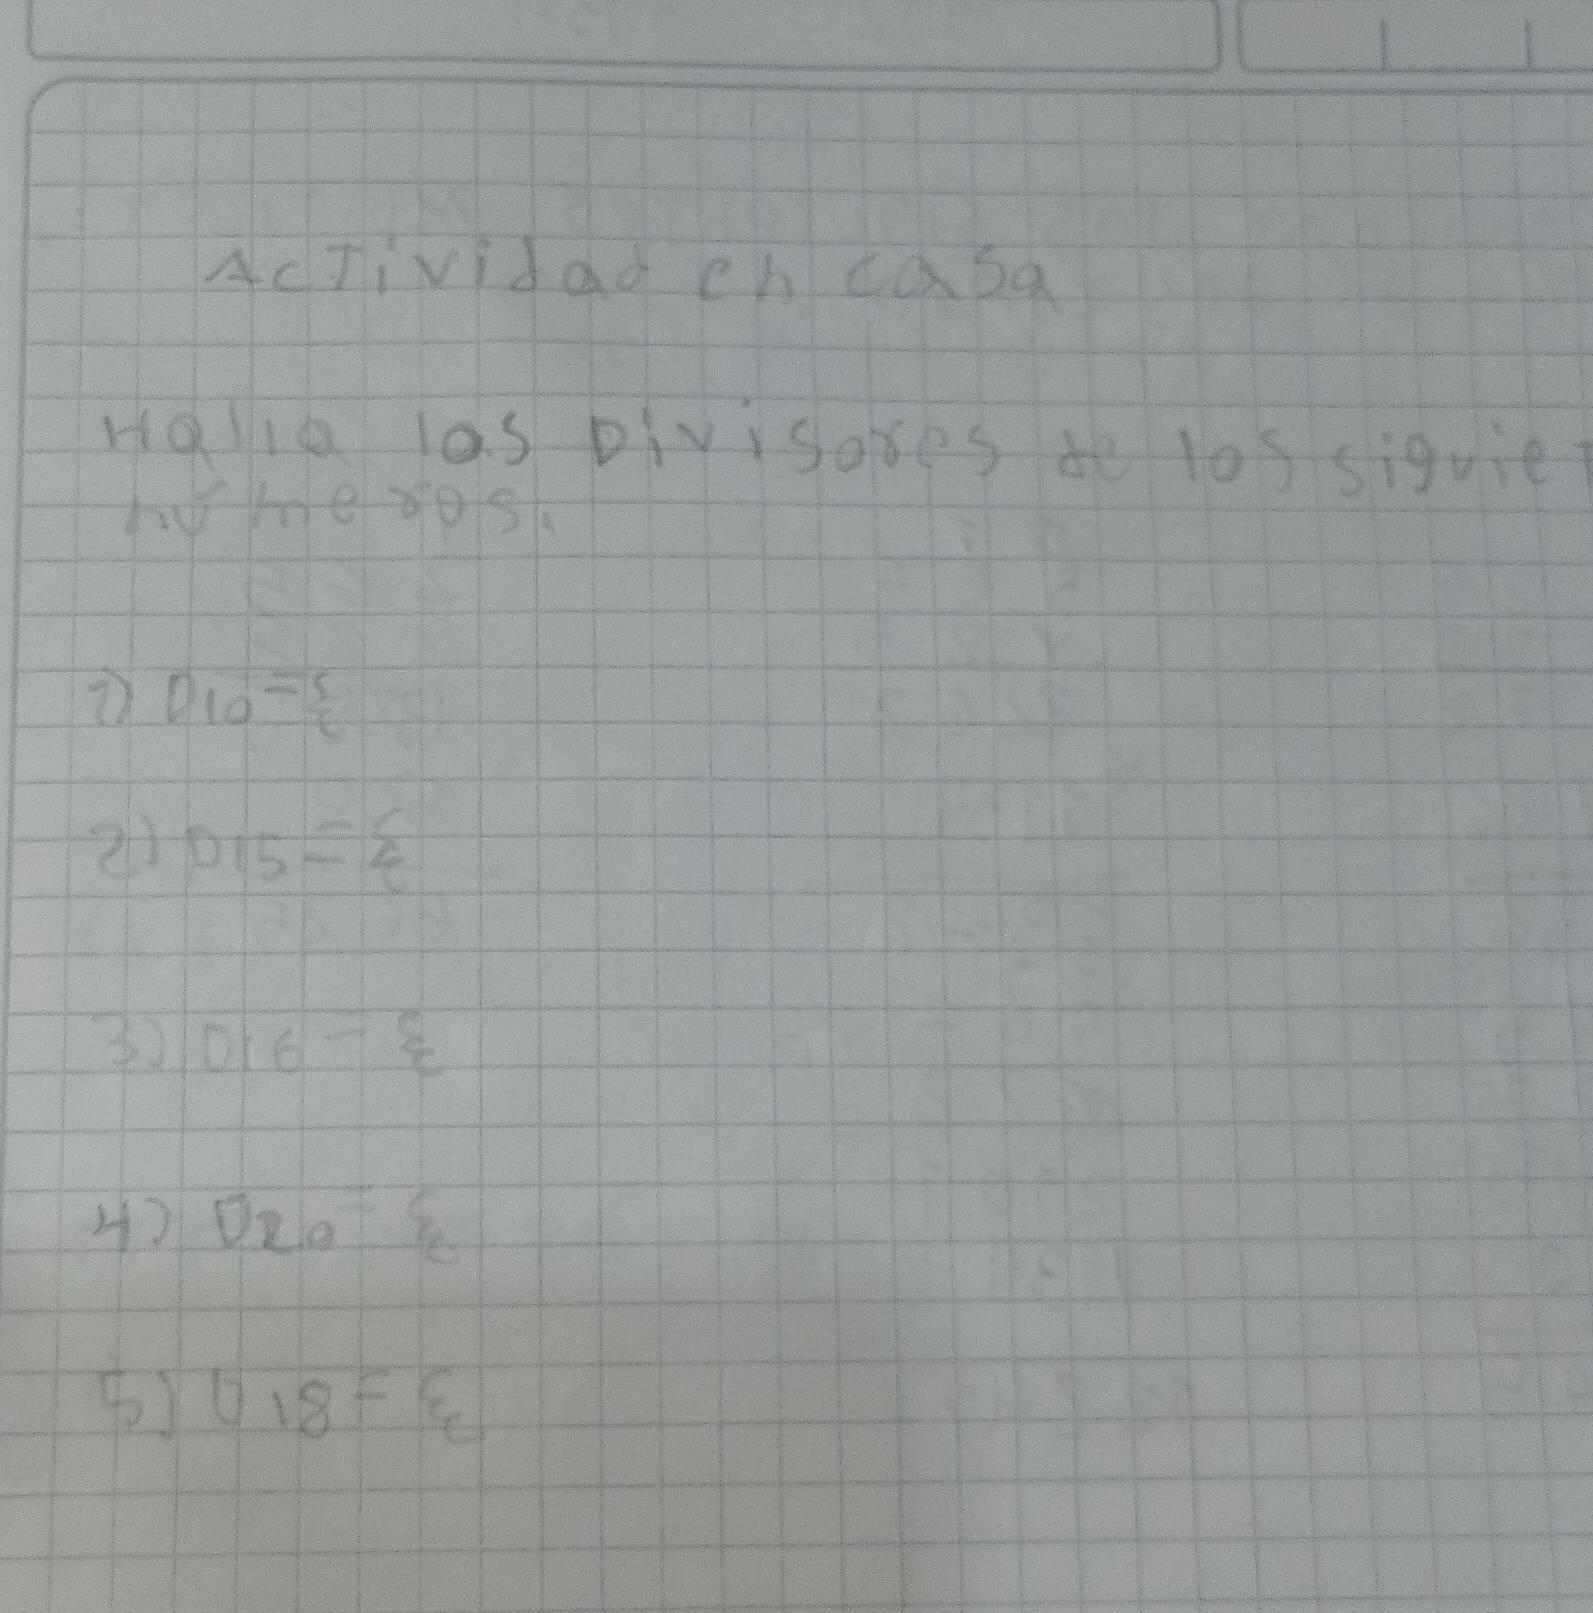 Actividad en casa
Halla los Divisores de los siguiet
números.
1) D10={
2) D15={
3) D16={
4) D20={
5) D18={